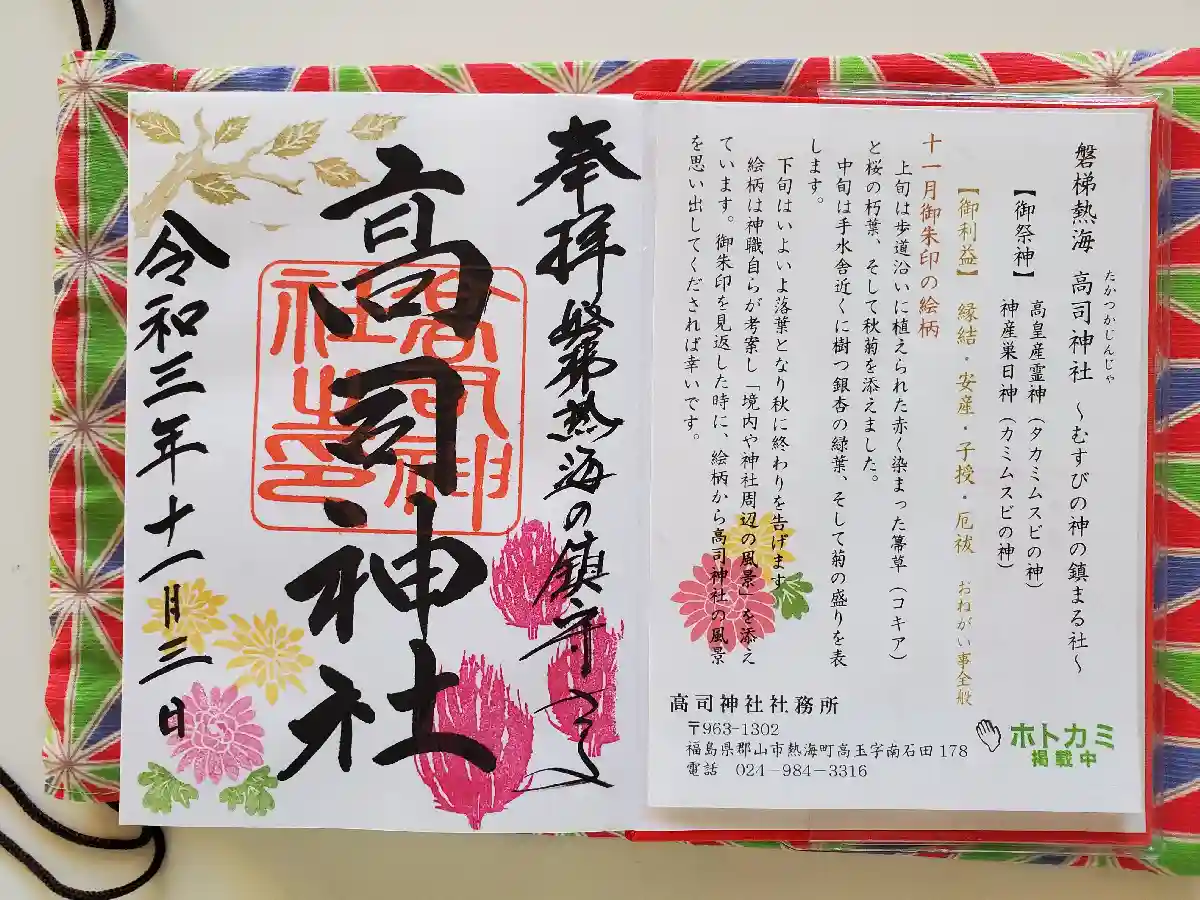 磐梯熱海 高司神社 ~むすびの神の鎮まる社~
たかつかじんじゃ
【御祭神】 高皇産霊神(タカミムスビの神)
神産巣日神(カミムスビの神)
【御利益】 縁結・安産・子授・厄祓 おねがい事全般
十一月御朱印の絵柄
上旬は歩道沿いに植えられた赤く染まった箒草(コキア)
と桜の朽葉、そして秋菊を添えました。
中旬は手水舎近くに樹つ銀杏の緑葉、そして菊の盛りを表
します。
下旬はいよいよ落葉となり秋に終わりを告げます
絵柄は神職自らが考案し「境内や神社周辺の風景」を添え
ています。御朱印を見返した時に、絵柄から高司神社の風景
を思い出してくだされば幸いです。
高司神社社務所
〒963-1302
福島県郡山市熱海町高玉字南石田178
電話 024-984-3316
ホトカミ
掲載中
奉拝 磐梯熱海の鎮守
高司神社
高司神社之印
令和三年十一月三日